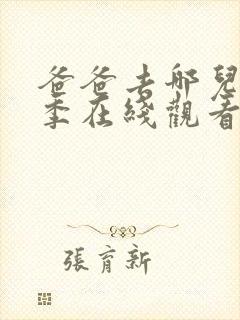 爸爸去哪兒
季在綫觀看
張育新